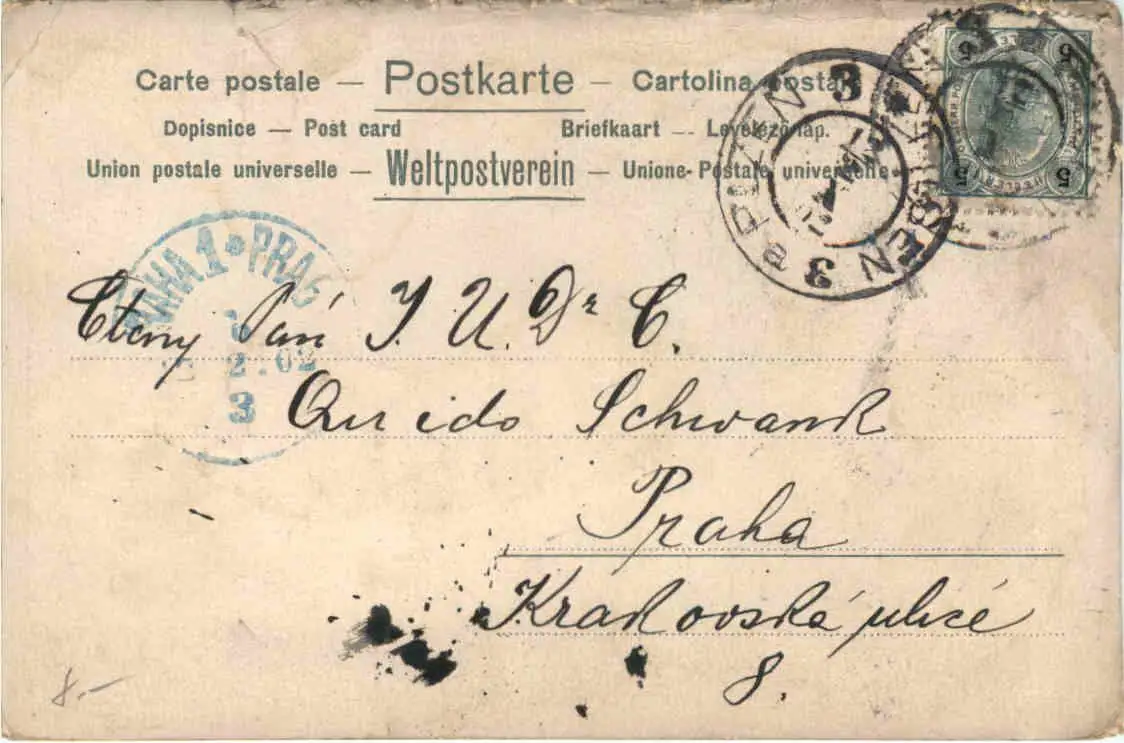 Carte postale — Postkarte — Cartolina postale
Dopisnice — Post card Briefkaart — Levelező-lap.
Union postale universelle — Weltpostverein — Unione Postale universelle
PILSEN 3 PLZEŇ 3
5 5
5 5
PRAHA 1 PRAG
2.02
3
Ctěný Pán J. U. Dr C.
Quido Schwank
Praha
Krakovská ulice
8.
8.–